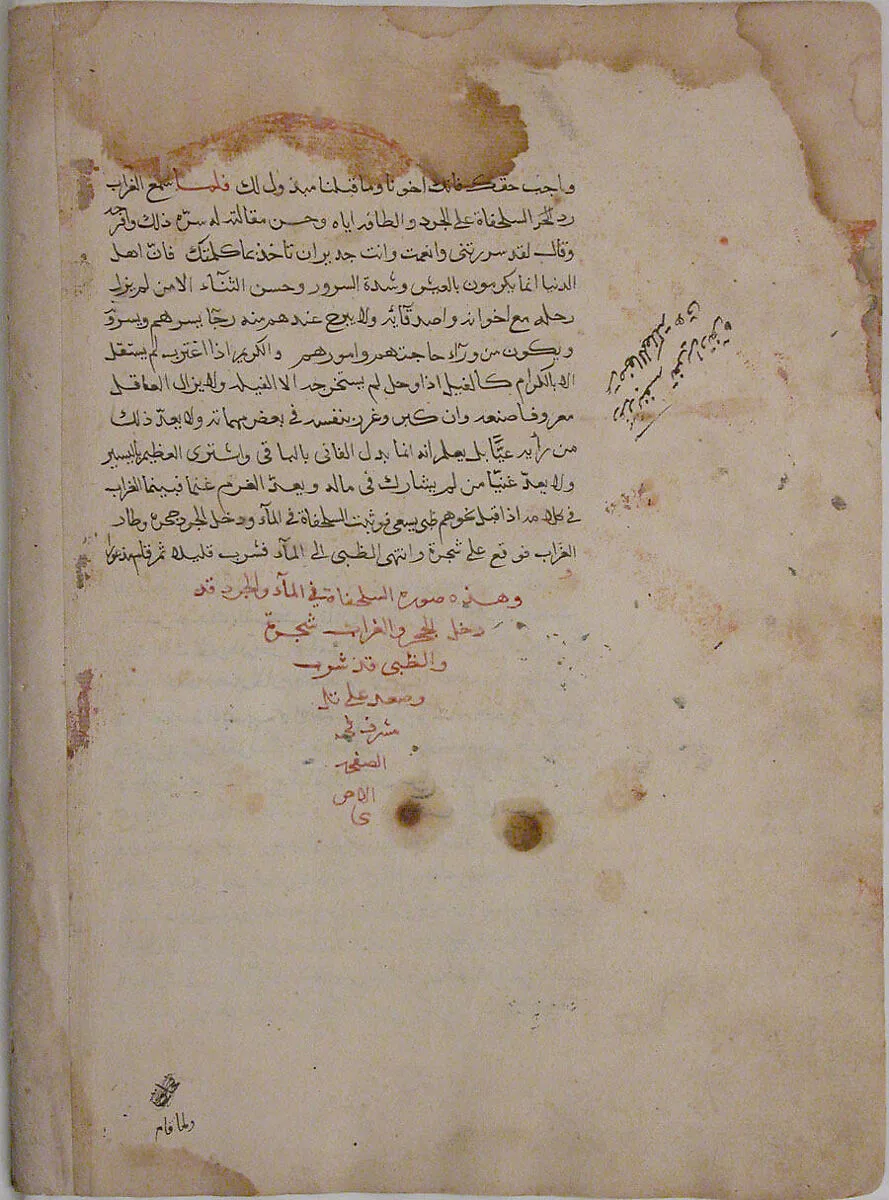 واجب حقك فانك اخونا وما قبلنا مبذول لك فلما سمع الغراب
رد السلحفاة على الجرد والطافه اياه وحسن مقالته له سره ذلك وافرحه
وقال لقد سررتنى وانعمت وانت جدير ان تاخذ بما كلمتك فان اهل
الدنيا انما يكرمون بالعيش وشدة السرور وحسن الثنآء الا من لم يزل
رحله مع اخوانه واصدقآئه ولا يبرح عندهم منه رجا يسرهم ويسروه
ويكون من ورآء حاجتهم وامورهم والكريم اذا اغترب لم يستقل
الا بالكرام كالفيل اذا وحل لم يستخرجه الا الفيله ولا يزال العاقل
معروفا صنعه وان كبر وغرر بنفسه في بعض مهماته ولا يعد ذلك
من رأيه عيّا بل يعلم انه انما بدل الفانى بالباقى واشترى العظيم باليسير
ولا يعد غنيّا من لم يشارك في ماله ويعد الغرم غنما فبينما الغراب
في كلامه اذا قبل نحوهم ظبى يسعى فوثبت السلحفاة في المآء ودخل الجرد حجره وطار
الغراب فوقع على شجرة وانتهى الظبى الى المآء فشرب قليلا ثم قام مذعورا
وهذه صورة السلحفاة في المآء والجرد قد
دخل الجحر والغراب شجرة
والظبى قد شرب
وصعد على تل
مشرف في
الصفحه
الاخرى
ولما قام